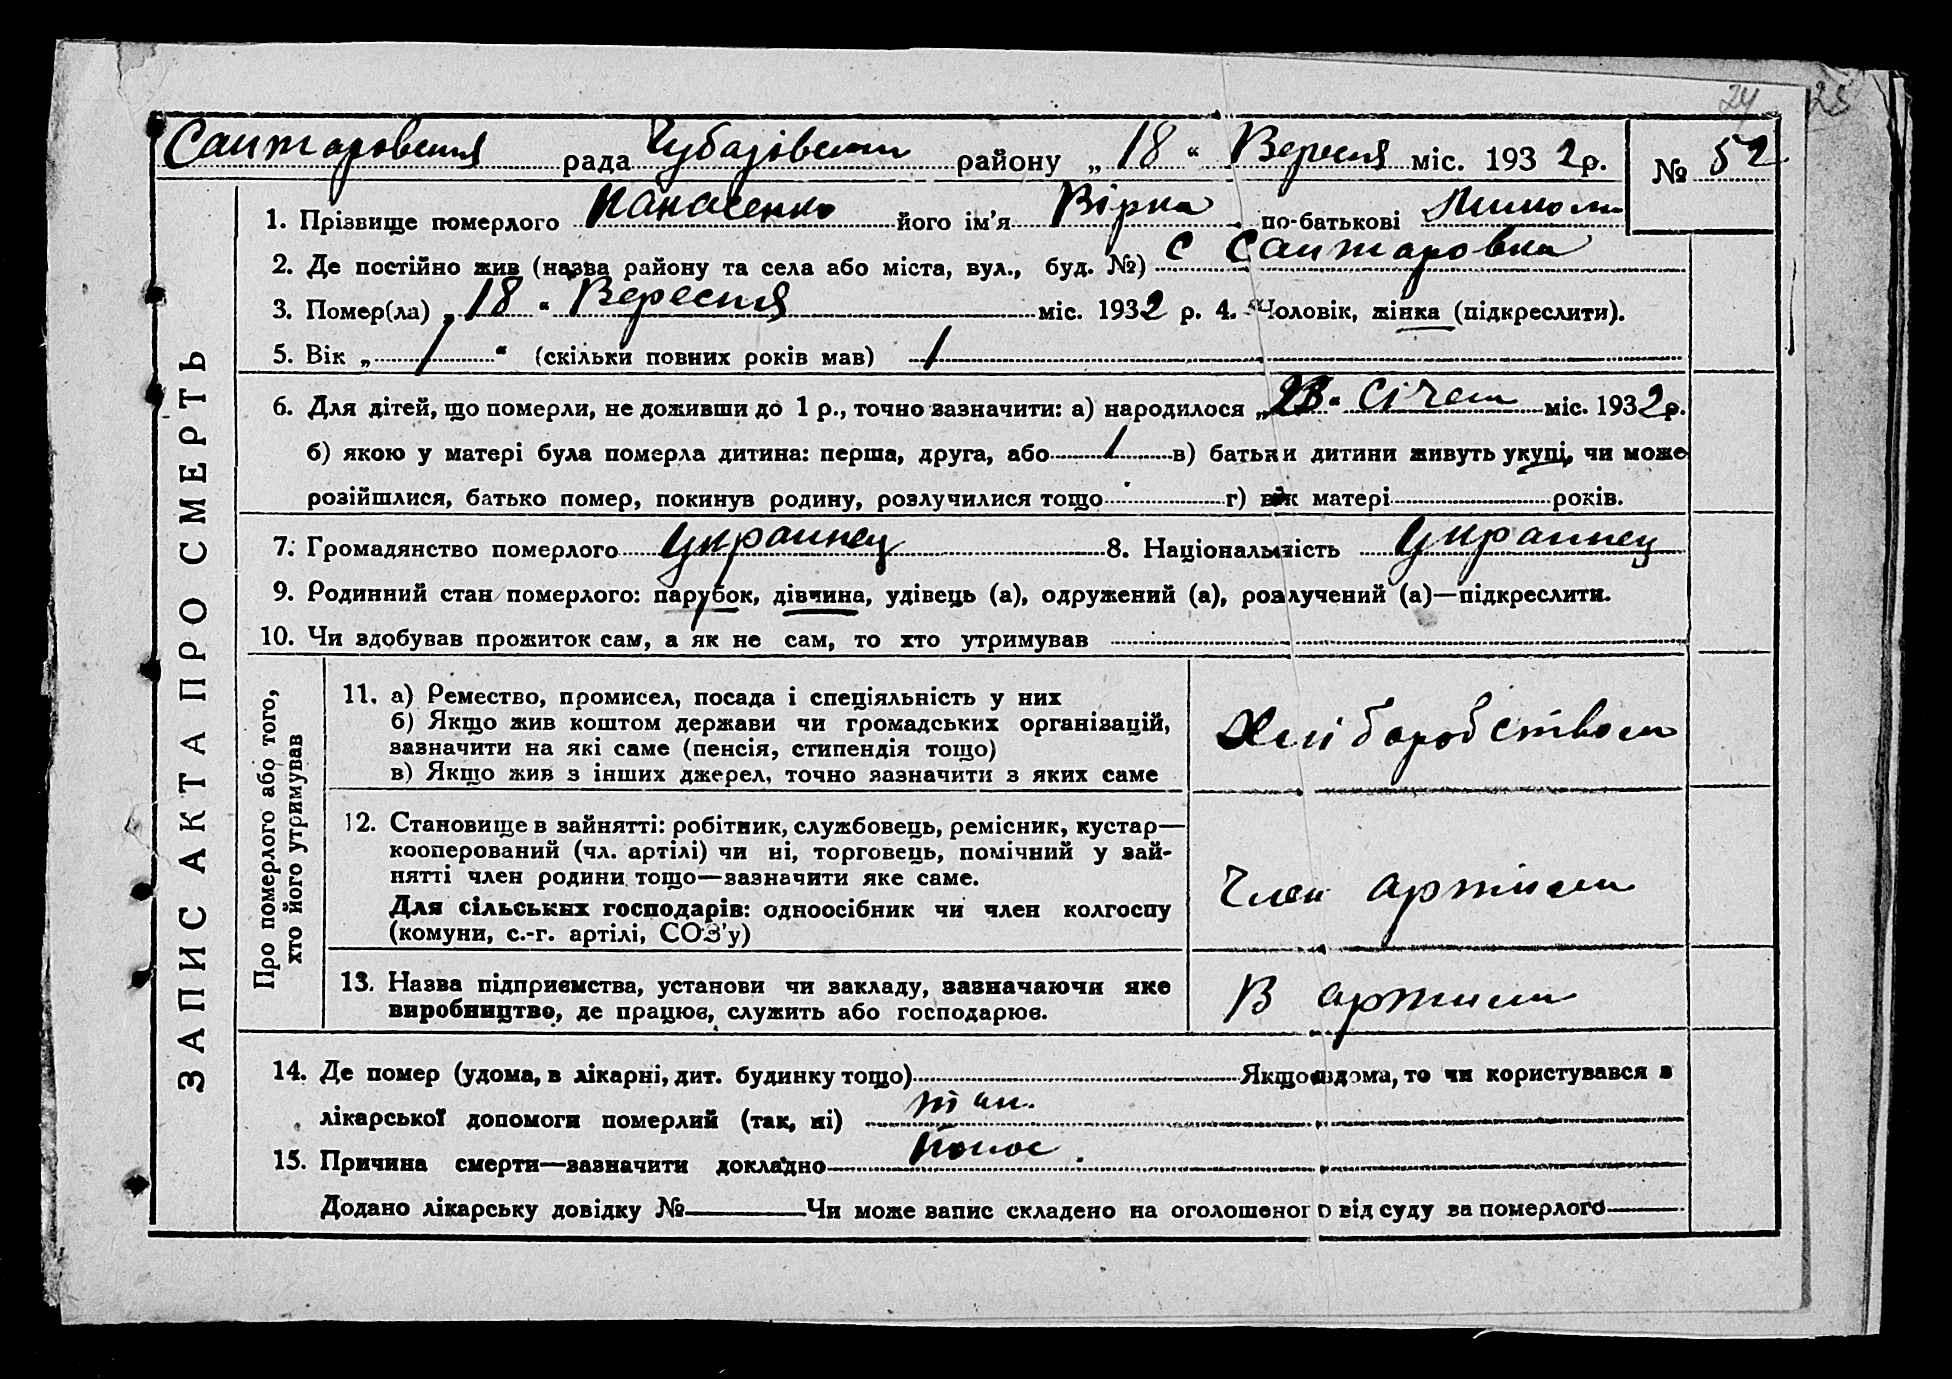 24 25
рада району „ 18 “ Вересня міс. 193 2 р. № 52
1. Прізвище померлого Панасенко його ім’я Вірка по-батькові
2. Де постійно жив (назва району та села або міста, вул., буд. №) с
3. Помер(ла) „ 18 “ Вересня міс. 1932 р. 4. Чоловік, жінка (підкреслити).
5. Вік „ / “ (скільки повних років мав) /
6. Для дітей, що померли, не доживши до 1 р., точно зазначити: а) народилося „ “ Січня міс. 1932 р.
б) якою у матері була померла дитина: перша, друга, або 1 в) батьки дитини живуть укупі, чи може
розійшлися, батько помер, покинув родину, розлучилися тощо г) вік матері років.
7. Громадянство померлого Украинец 8. Національність Украинец
9. Родинний стан померлого: парубок, дівчина, удівець (а), одружений (а), розлучений (а)—підкреслити.
10. Чи здобував прожиток сам, а як не сам, то хто утримував
ЗАПИС АКТА ПРО СМЕРТЬ
Про померлого або того,
хто його утримував
11. а) Ремество, промисел, посада і спеціяльність у них
б) Якщо жив коштом держави чи громадських організацій,
зазначити на які саме (пенсія, стипендія тощо)
в) Якщо жив з інших джерел, точно зазначити з яких саме
Хліборобством
12. Становище в зайнятті: робітник, службовець, ремісник, кустар—
кооперований (чл. артілі) чи ні, торговець, помічний у зай-
нятті член родини тощо—зазначити яке саме.
Для сільських господарів: одноосібник чи член колгоспу
(комуни, с.-г. артілі, СОЗ’у)
Член артили
13. Назва підприємства, установи чи закладу, зазначаючи яке
виробництво, де працює, служить або господарює.
В артили
14. Де помер (удома, в лікарні, дит. будинку тощо) Якщо вдома, то чи користувався з
лікарської допомоги померлий (так, ні) так.
15. Причина смерти—зазначити докладно Понос.
Додано лікарську довідку № Чи може запис складено на оголошеного від суду за померлого